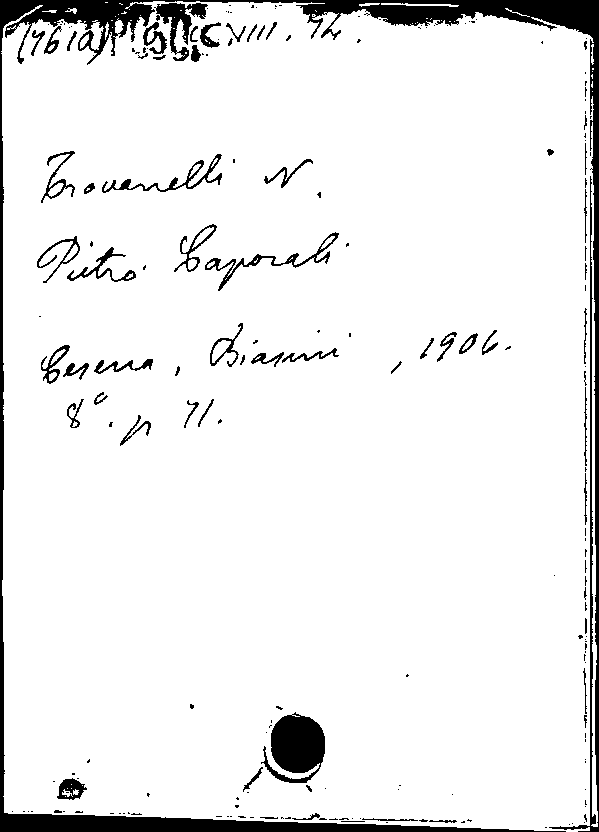 (7610) CVIII. 74.
Trovanelli N.
Pietro Caporali
Cesena, Biasini, 1906.
8°. p 71.